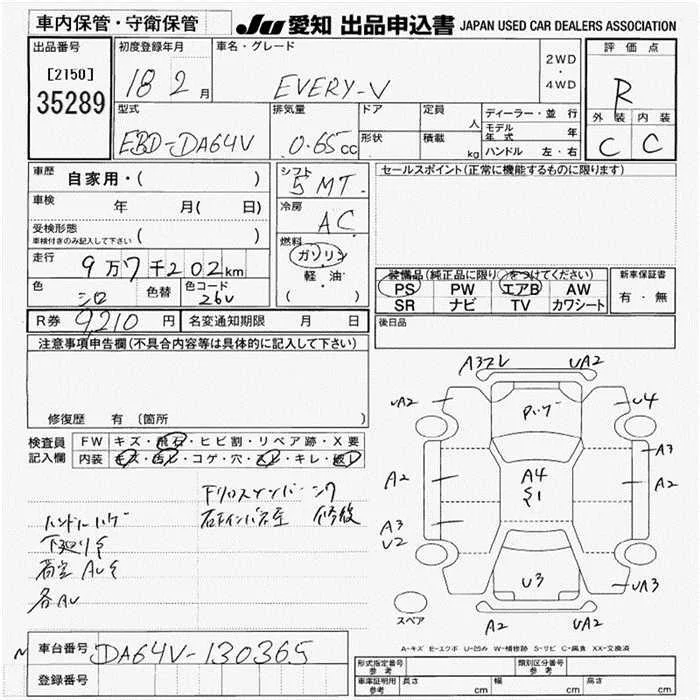 車内保管・守衛保管
JU 愛知 出品申込書 JAPAN USED CAR DEALERS ASSOCIATION
出品番号
[2150]
35289
初度登録年月
18 2 月
車名・グレード
EVERY-V
2WD
・
4WD
評価点
R
外装 内装
C C
型式
EBD-DA64V
排気量
0.65 cc
ドア
形状
定員
人
積載
kg
ディーラー・並行
モデル年式 年
ハンドル 左・右
車歴
自家用・( )
車検
年 月( 日)
受検形態
車検付きのみ記入して下さい ( )
走行
9万7千202km
色
シロ
色替
色コード
26U
シフト
5MT
冷房
AC
燃料
ガソリン
・
軽・油
( )
セールスポイント(正常に機能するものに限ります)
装備品(純正品に限り○をつけてください)
PS PW エアB AW
SR ナビ TV カワシート
新車保証書
有・無
R券 9210 円
名変通知期限 月 日
後日品
注意事項申告欄(不具合内容等は具体的に記入して下さい)
修復歴 有 (箇所 )
検査員
記入欄
FW キズ・飛石・ヒビ割・リペア跡・X要
内装 キズ・汚レ・コゲ・穴・スレ・キレ・破レ
ハンドルハゲ
下廻りS
各AU
修復
A3フレ UA2
UA2 U4
ハゲ
A3
A2 A4 A2
S1
A3
U2
U3 UA3
A2 UA2
スペア
A-キズ E-エクボ U-凹み W-補修跡 S-サビ C-腐食 XX-交換済
車台番号
DA64V-130365
登録番号
形式指定番号
参考
類別区分番号
参考
車庫証明用
参考
長さ cm
幅 cm
高さ cm